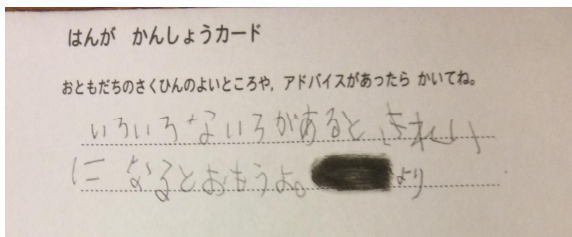 はんが　かんしょうカード
おともだちのさくひんのよいところや，アドバイスがあったら かいてね。
いろいろないろがあると、きれい
になるとおもうよ。 より